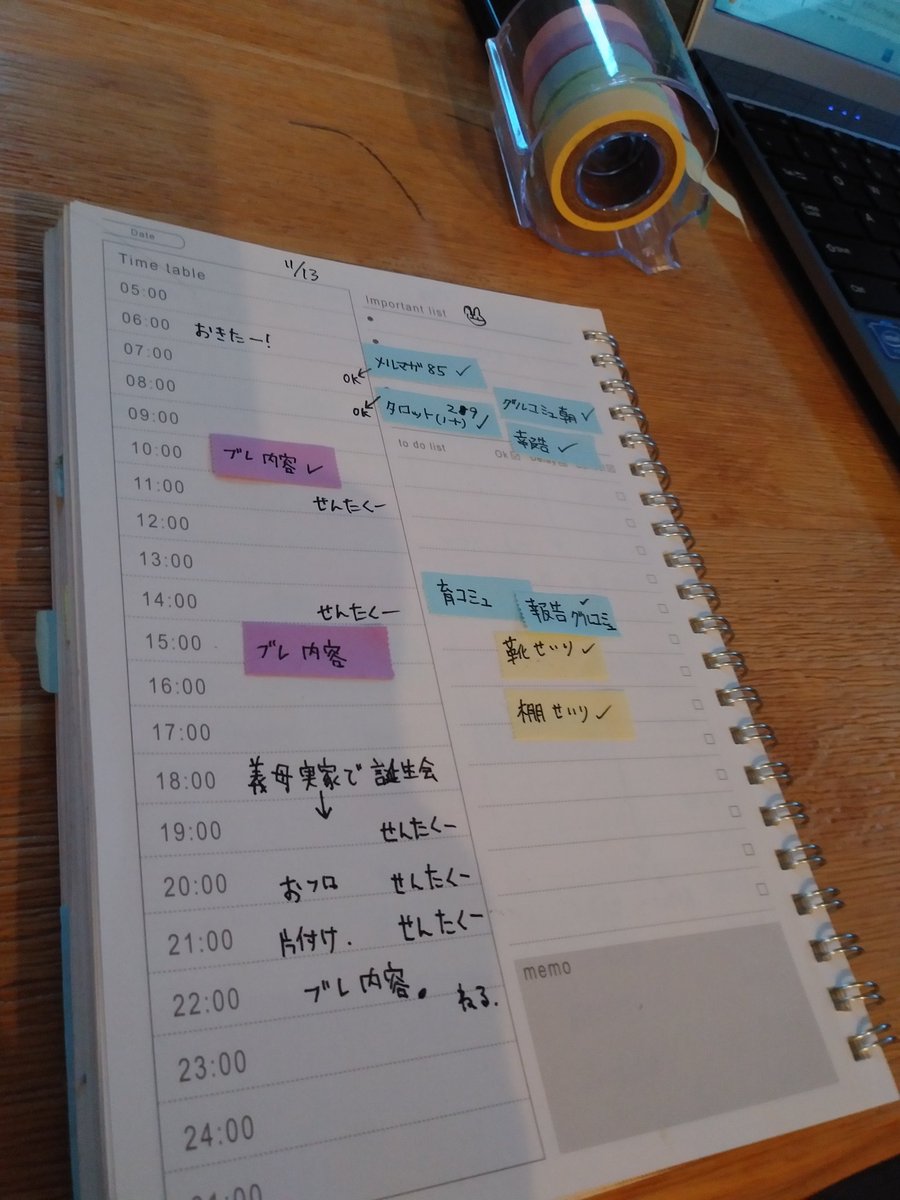 Date
Time table
11/13
05:00
06:00 おきたー!
07:00
08:00
09:00
10:00 ブレ内容✓
11:00 せんたくー
12:00
13:00
14:00 せんたくー
15:00 ブレ 内容
16:00
17:00
18:00 義母実家で誕生会
↓
19:00 せんたくー
20:00 おフロ せんたくー
21:00 片付け. せんたくー
22:00 ブレ内容. ねる.
23:00
24:00
Important list
メルマガ 85 ✓
OK
タロット
OK
グルコミュ朝✓
報告✓
to do list
Ok
育コミュ
報告 グルコミュ ✓
靴せいり✓
棚せいり✓
memo